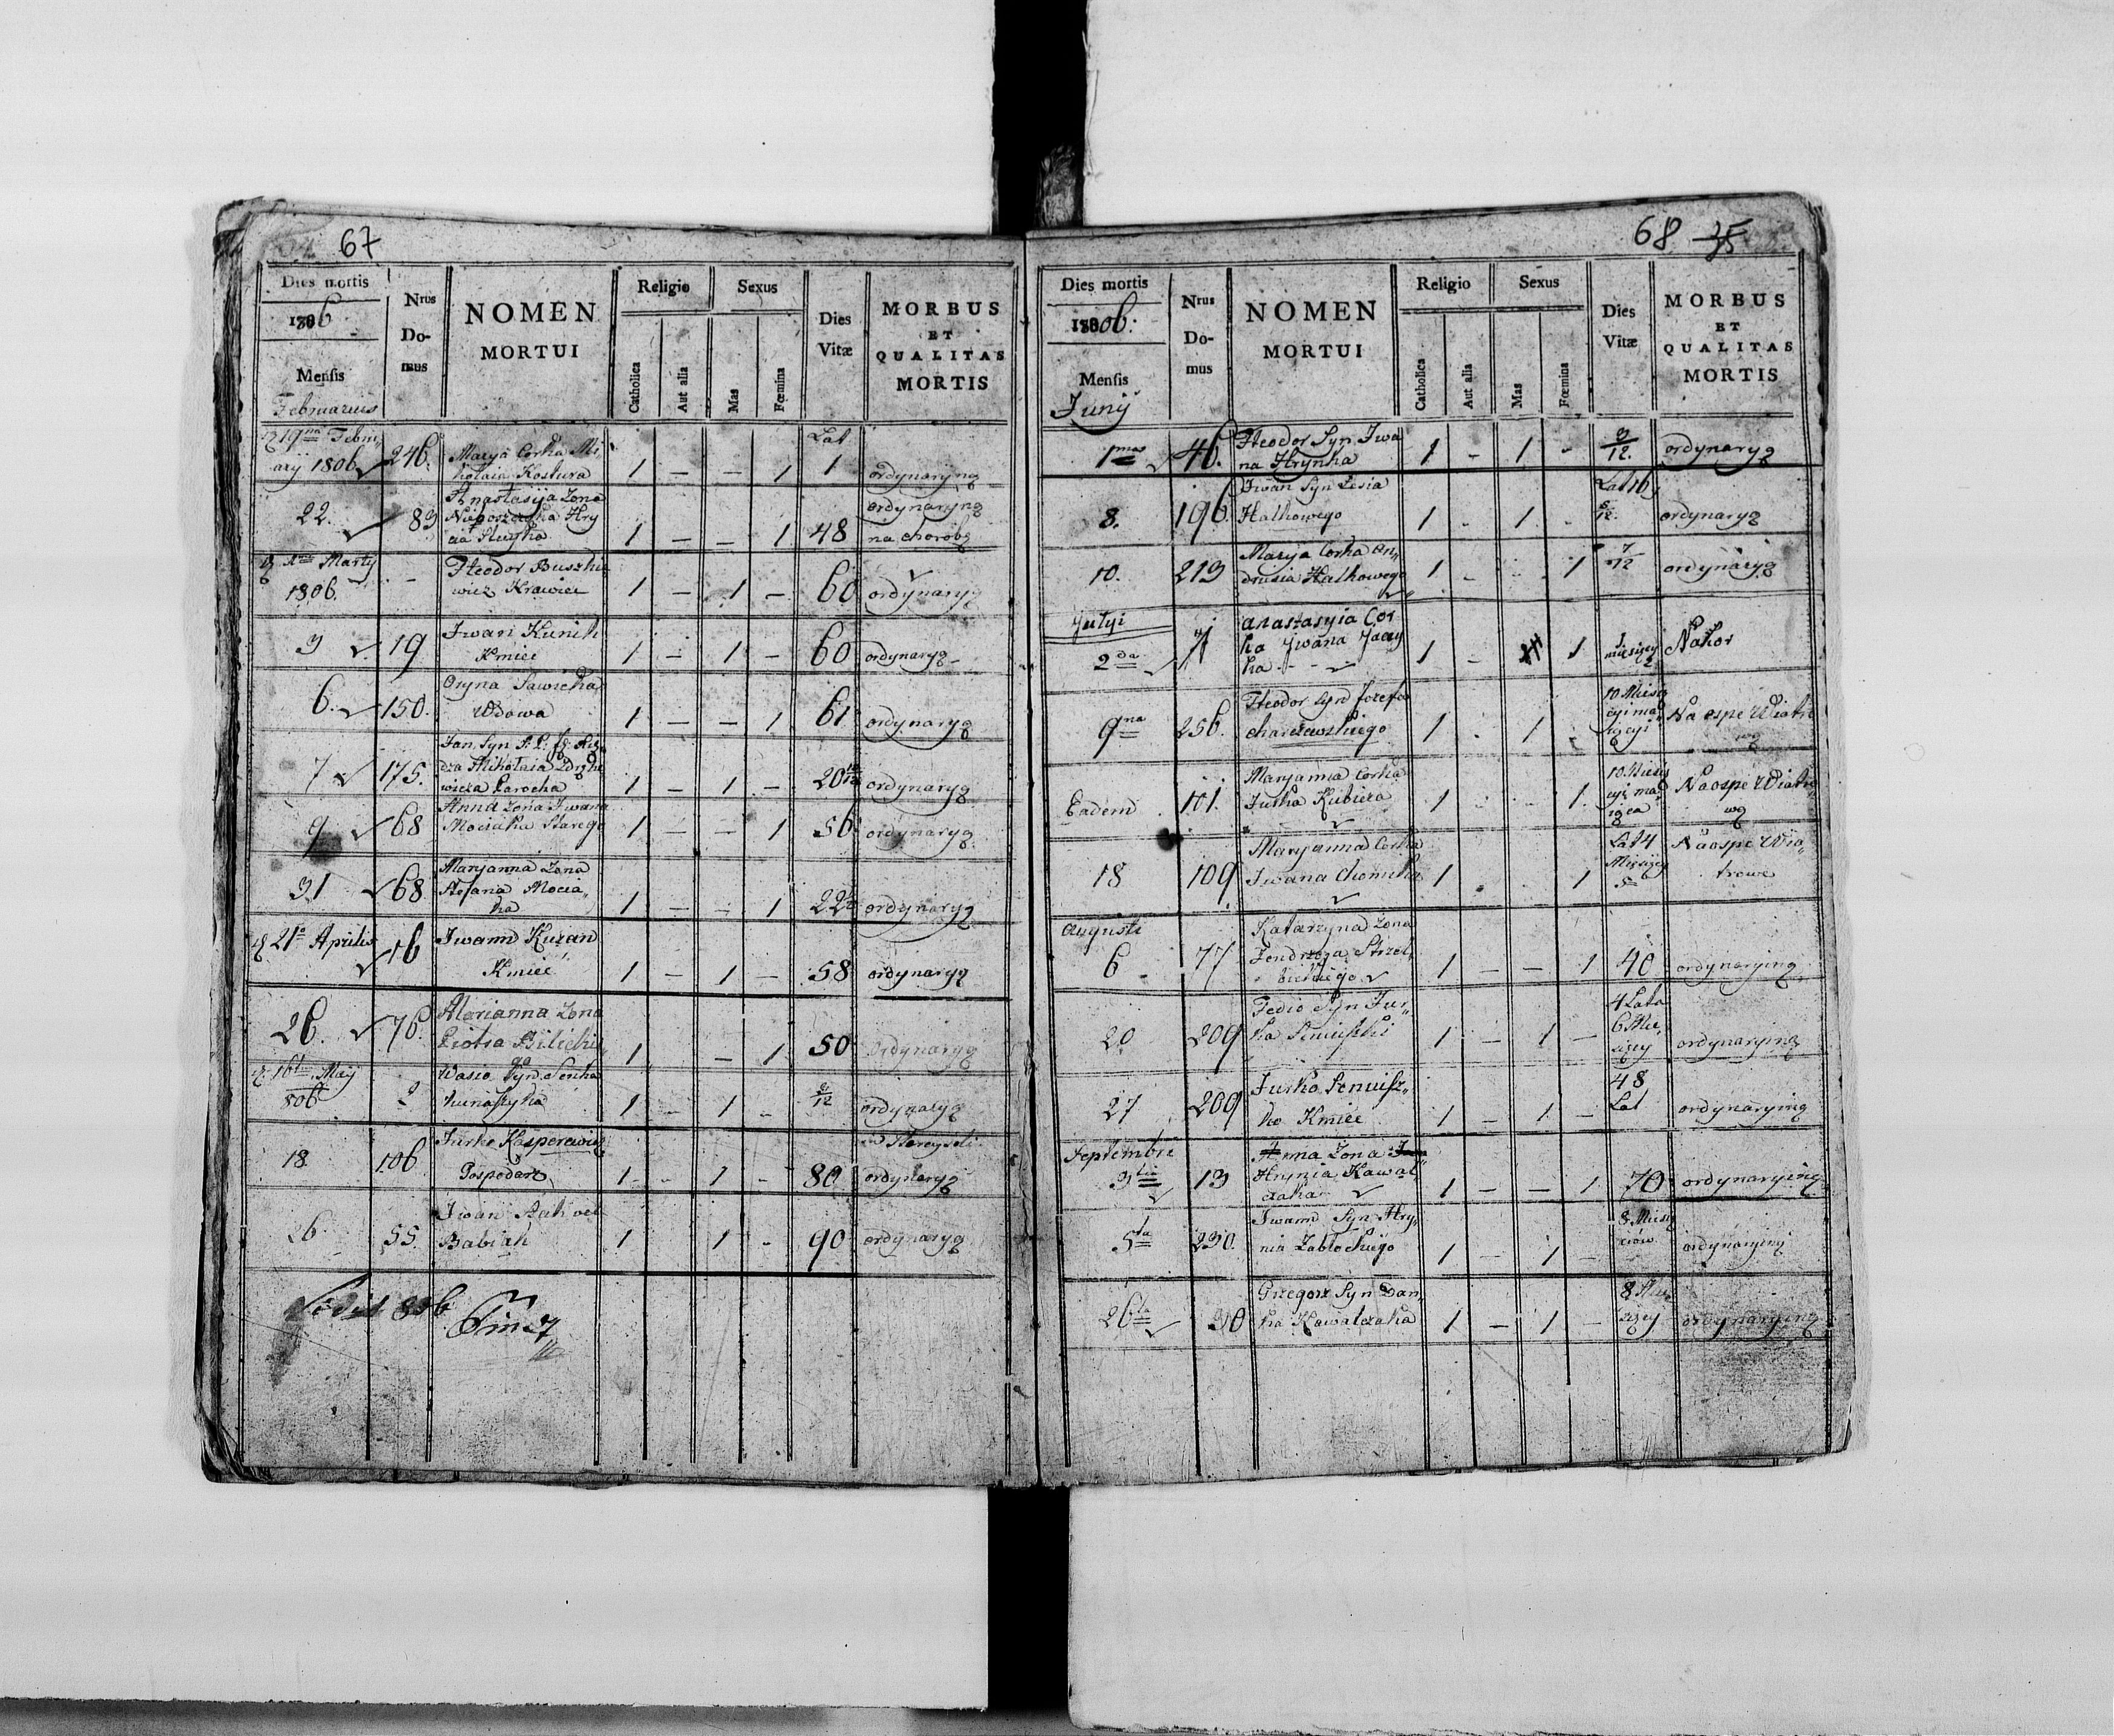 67
Dies mortis
1806
Mensis
Februarius
Nrus
Do-
mus
NOMEN
MORTUI
Religio
Catholica
Aut alia
Sexus
Mas
Fœmina
Dies
Vitæ
MORBUS
ET
QUALITAS
MORTIS
19na Febru
arij 1806 246. Marya Corka Mi
kolaia Kostura 1 – – 1 Lat 1 ordynaryną
22. 83 Anastasija Zona
1 – – 1 48 ordynaryną
na chorobę
Marty
1806. - Theodor
wicz Krawiec 1 – 1 – 60 ordynaryą
3 19 Iwan Kunik
Kmiec 1 – 1 – 60 ordynaryą
6. 150. Oryna Sawicka
Wdowa 1 – – 1 61 ordynaryą
7 175. Jan Syn
dza Mikolaia
wicza Parocha 1 – 1 – 20 ordynaryą
9 68 Anna Zona Iwana
Mociaka Starego 1 – – 1 56 ordynaryą
31 68 Maryanna Zona
Stefana Mocia„
ka 1 – – 1 22 ordynaryą
21o Aprilis 16 Iwann Kuzan
Kmieć 1 – 1 – 58 ordynaryą
26. 76. Marianna Zona
Piotra
1 – 1 50 ordynaryą
May
806 Wasio Syn Senka
1 – 1 – ordynaryą
18 106 Jurko Kasperewicz
Gospodarz 1 - 1 - 80 ordynaryą
26 55. Iwan
Babiak 1 1 - 90 ordynaryą
806
68
Dies mortis
1806.
Mensis
Junij
Nrus
Do-
mus
NOMEN
MORTUI
Religio
Catholica
Aut alia
Sexus
Mas
Fœmina
Dies
Vitæ
MORBUS
ET
QUALITAS
MORTIS
1ma 46. Theodor Syn Iwa
na Hrynka 1 - 1 - 9/12. ordynaryą
8. 196. Iwan Syn Lesia
Halkowego 1 - 1 - Lat 16 ordynaryą
10. 213 Marya Corka An„
drusia Halkowego 1 - - 1 7/12 ordynaryą
Julyi
2da 71 Anastasyia Cor
ka Iwana
ka 1 - 1 Na Kor
9na 256. Theodor Syn Jozefa
Charzewskiego 1 - 1 - 10 Miesię
cyi ma„
iącyi Na ospe Wiatro
wą
Eadem 101. Maryanna Corka
Jurka Kubisza 1 - - 1. 10 Miesię
cyi ma„ Na ospe Wiatro
wą
18 109. Maryanna Corka
Iwana Chomika 1 - - 1 Lat 4
Miesięcy
5 Na ospe Wia„
trowe
Augusti
6 77 Katarzyna Zona
Jendrzeja Strzel„
bickiego 1 – – 1 40 ordynaryiną
20 209 Fedio Syn Jur„
ka 1 – 1 – 4 Lata
6 Mie„
sięcy ordynaryiną
27 209 Jurko
ko Kmiec 1 – 1 – 48
Lat ordynaryiną
Septembris
3tia 13 Anna Zona
Hrynia Kawal
czaka 1 – – 1 70 ordynaryiną
5ta 230. Iwann Syn Hry„
nia Zablockiego 1 – 1 – 8 Miesię
ordynaryiną
26ta 30 Grzegorz Syn Dań„
ka Kawalczaka 1 – 1 – 8 Mie„
sięcy ordynaryiną